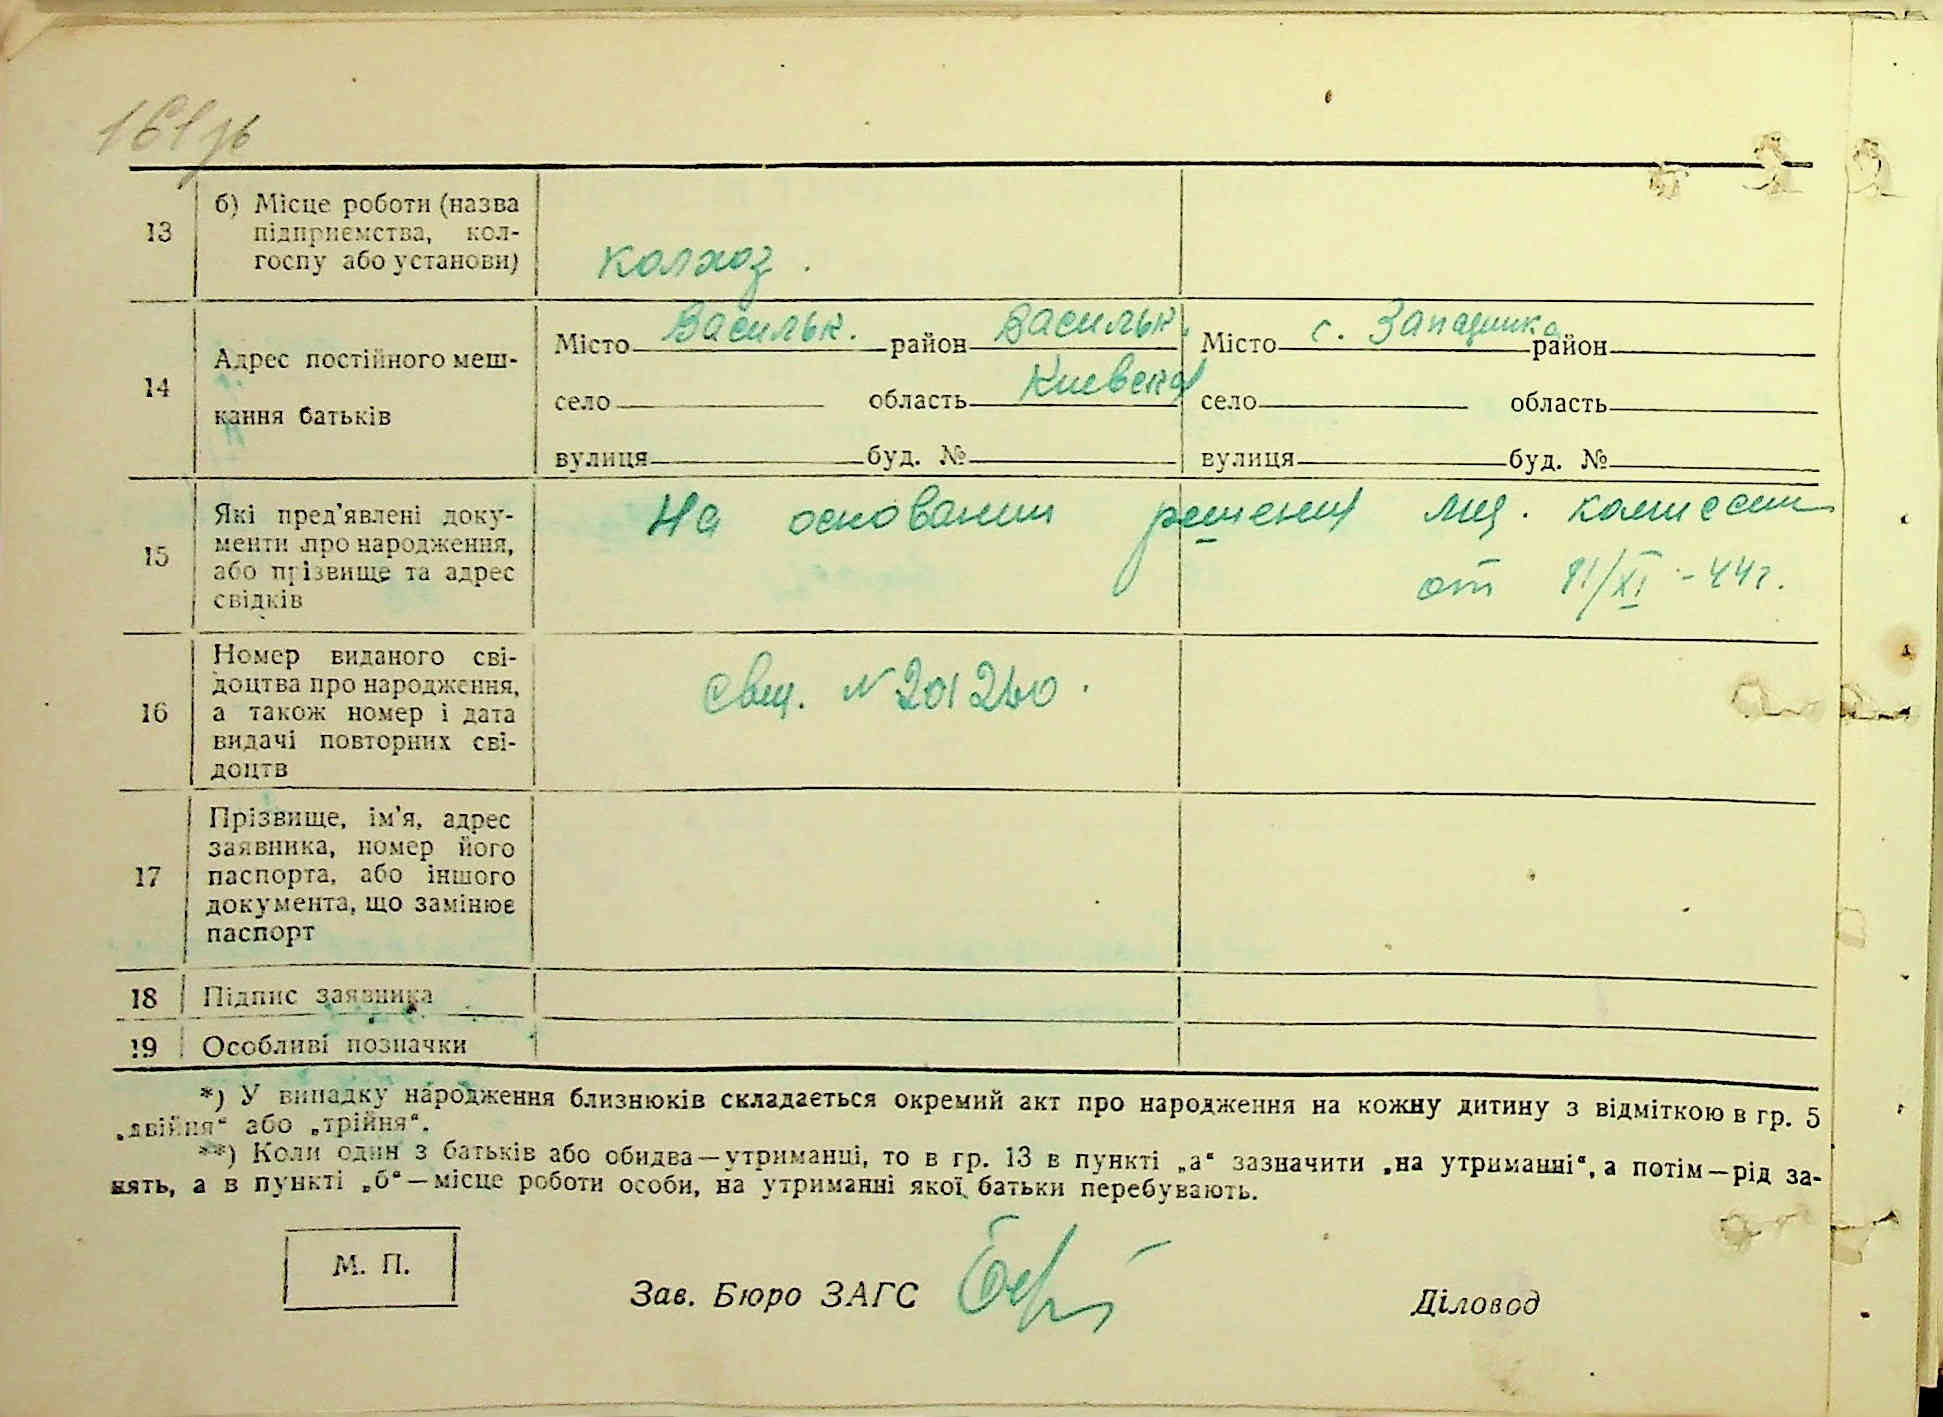 161 зв
13
б) Місце роботи (назва
підприємства, кол-
госпу або установи)
колхоз.
14
Адрес постійного меш-
кання батьків
Місто Васильк. район Васильк.
село область Киевская
вулиця буд. №
Місто с. Западинка район
село область
вулиця буд. №
15
Які пред'явлені доку-
менти про народження,
або прізвище та адрес
свідків
На основании решения мед. комиссии
от 11/XI-44г.
16
Номер виданого сві-
доцтва про народження,
а також номер і дата
видачі повторних сві-
доцтв
свид. №
17
Прізвище, ім'я, адрес
заявника, номер його
паспорта, або іншого
документа, що замінює
паспорт
18 Підпис заявника
19 Особливі позначки
*) У випадку народження близнюків складається окремий акт про народження на кожну дитину з відміткою в гр. 5
„двійня“ або „трійня“.
**) Коли один з батьків або обидва—утриманці, то в гр. 13 в пункті „а“ зазначити „на утриманні“, а потім—рід за-
нять, а в пункті „б“—місце роботи особи, на утриманні якої батьки перебувають.
М. П.
Зав. Бюро ЗАГС
Діловод